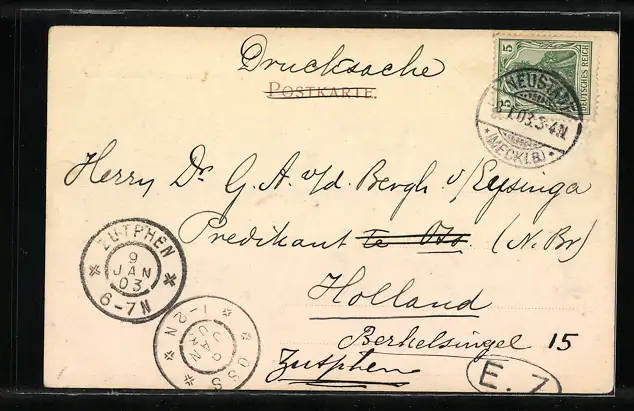 Drucksache
POSTKARTE
5 DEUTSCHES REICH 5
NEUSTADT
8 1 03. 3-4N.
(MECKLB)
Herrn Dr. G. A. v/d. Bergh v/Eysinga
Predikant te Oss. (N. Br)
Holland
Berkelsingel 15
Zutphen
ZUTPHEN
9
JAN
03
6-7N
OSS
9
JAN
1-2N
E. 7